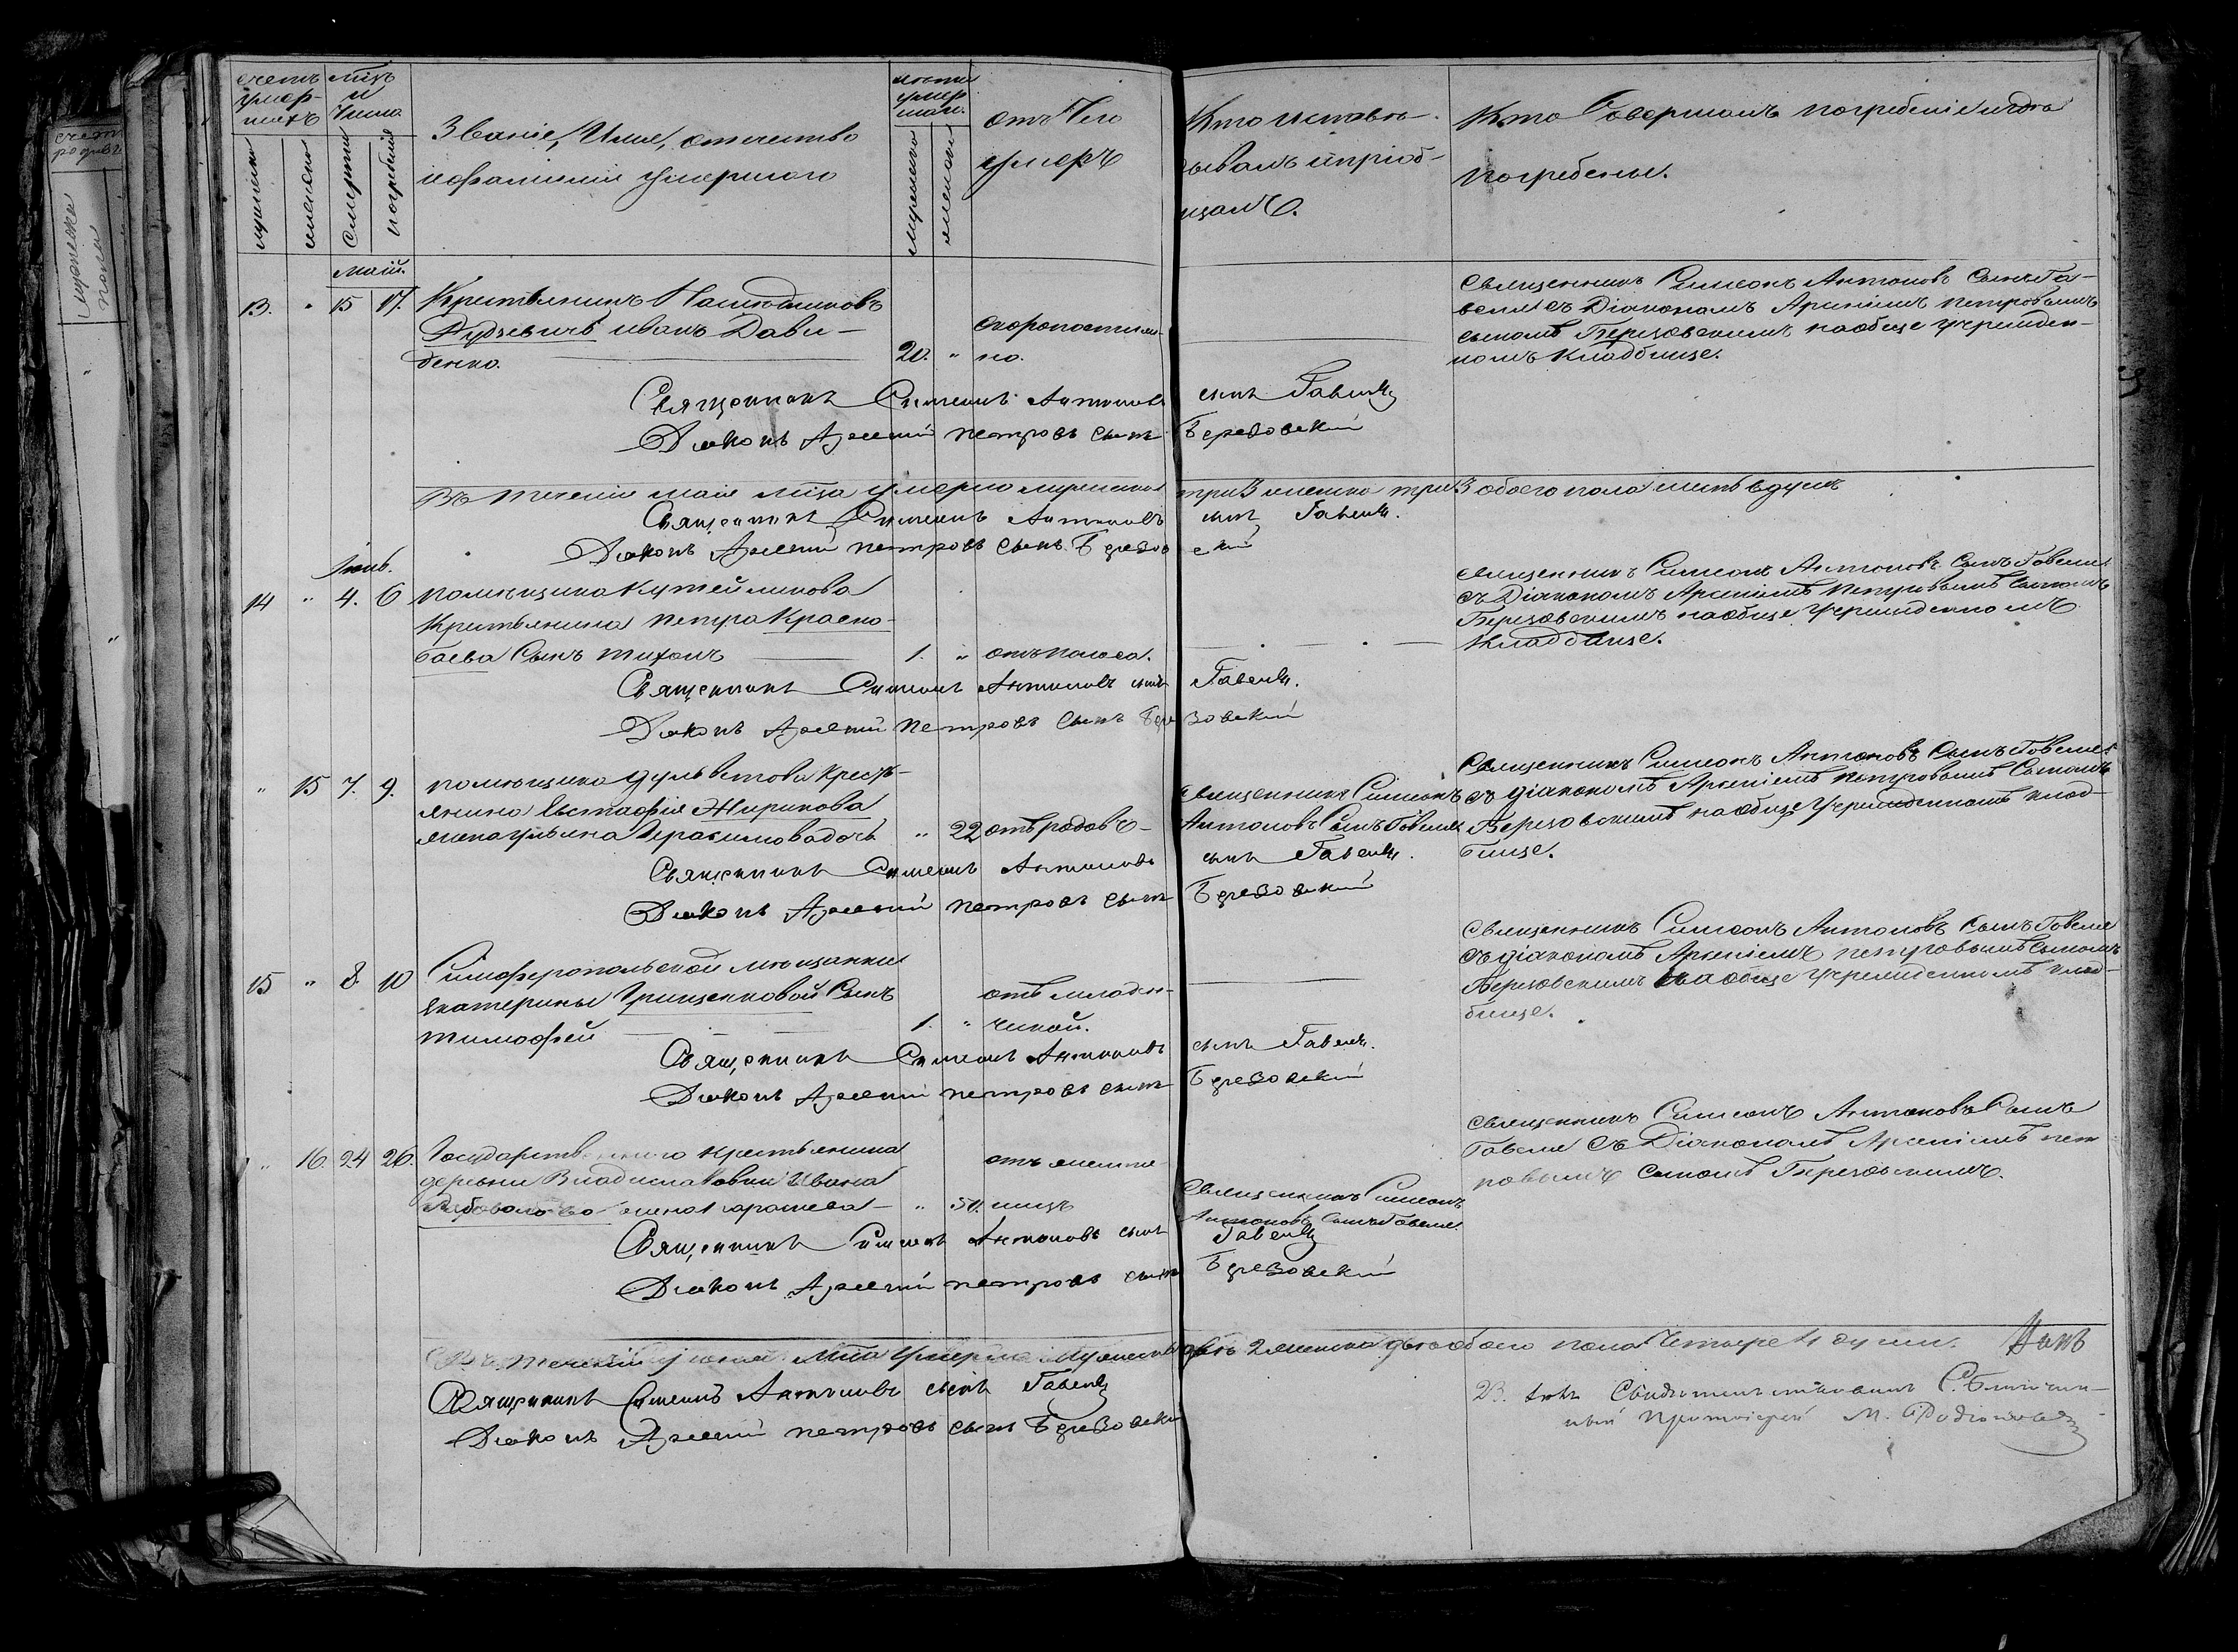 счетъ
умер-
шихъ
мѣц
и
Число
мужеска
женска
смерти
погребенія
Званіе, Имя, отчество
и фамилія умершаго
лѣта
умер
шаго.
мужеска
женска
отъ Чего
умеръ
Кто исповѣ-
дывалъ и пріоб-
щалъ.
Кто Совершалъ погребеніе и гдѣ
погребены.
Маій.
13. " 15 17. Крестьянинъ Наслѣдниковъ
Рудзевичъ Иванъ Дави-
денко. 20. "
скоропостиж-
но.
Священникъ Симеонъ Антоновъ Сынъ Га-
веля съ Діакономъ Арсеніемъ Петровымъ
сыномъ Березовскимъ на обще учрежден-
номъ кладбище.
Священникъ Симеонъ Антоновъ сынъ Гавеля
Діаконъ Арсеній Петровъ сынъ Березовскій
Въ теченіи маія мѣца умерло мужеска три 3 женска три 3 обоего пола шесть 6 душъ
Священникъ Симеонъ Антоновъ сынъ Гавеля.
Діаконъ Арсеній Петровъ сынъ Березовскій
Іюнь.
14 " 4. 6 помѣщика Кутейникова
Крестьянина Петра Красно-
баева Сынъ Тихонъ 1. " отъ поноса.
Священникъ Симеонъ Антоновъ Сынъ Гавеля
съ Діакономъ Арсеніемъ Петровымъ Сыномъ
Березовскимъ на обще учрежденномъ
Кладбище.
Священникъ Симеонъ Антоновъ сынъ Гавеля.
Діаконъ Арсеній Петровъ Сынъ Березовскій
" 15 7. 9. помѣщика Крестъ-
янина Евстафія Жирикова
жена Ульяна Герасимова дочь " 22 отъ родовъ
Священникъ Симеонъ
Антоновъ Сынъ Гавеля
Священникъ Симеонъ Антоновъ Сынъ Гавеля
съ діакономъ Арсеніемъ Петровымъ Сыномъ
Березовскимъ на обще учрежденномъ клад-
бище.
Священникъ Симеонъ Антоновъ сынъ Гавеля.
Діаконъ Арсеній Петровъ сынъ Березовскій
15 " 8. 10 Симферопольской мѣщанки
Екатерины Грищенковой Сынъ
Тимофей 1. "
отъ младен-
ческой.
Священникъ Симеонъ Антоновъ Сынъ Гавеля
съ діакономъ Арсеніемъ Петровымъ Сыномъ
Березовскимъ на обще учрежденномъ клад-
бище.
Священникъ Симеонъ Антоновъ сынъ Гавеля.
Діаконъ Арсеній Петровъ сынъ Березовскій
" 16. 24 26. Государственнаго крестьянина
деревни Ивана
жена " 50.
Священникъ Симеонъ
Антоновъ Сынъ Гавеля
Священникъ Симеонъ Антоновъ Сынъ
Гавеля Съ Діакономъ Арсеніемъ Пет
ровымъ Сыномъ Березовскимъ.
Священникъ Симеонъ Антоновъ сынъ Гавеля
Діаконъ Арсеній Петровъ сынъ Березовскій
Въ теченіи іюня мѣца умерло мужеска два 2 женска два обоего пола четыре 4 души.
Священникъ Симеонъ Антоновъ сынъ Гавеля
Діаконъ Арсеній Петровъ сынъ Березовски
Благочин-
ный Протоіерей М. Родіоновъ